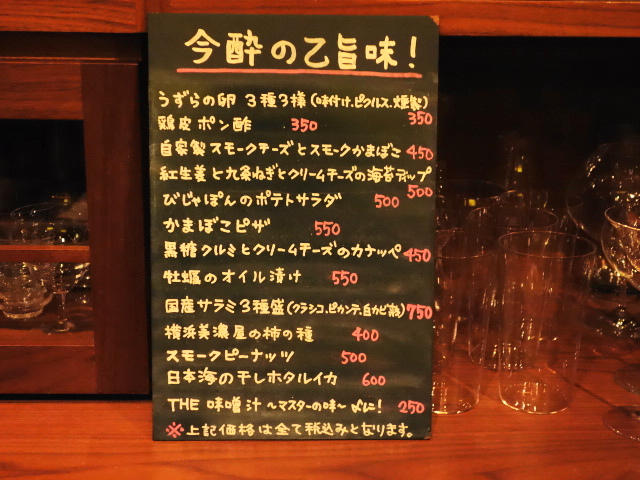 今酔の乙旨味!
うずらの卵 3種3様(味付け、ピクルス、燻製) 350
鶏皮ポン酢 350
自家製スモークチーズとスモークかまぼこ 450
紅生姜と九条ねぎとクリームチーズの海苔ディップ 500
びじゃぽんのポテトサラダ 500
かまぼこピザ 550
黒糖クルミとクリームチーズのカナッペ 450
牡蠣のオイル漬け 550
国産サラミ3種盛(クラシコ、ピカンテ、白カビ熟) 750
横浜美濃屋の柿の種 400
スモークピーナッツ 500
日本海の干しホタルイカ 600
THE 味噌汁 〜マスターの味〜 よに! 250
※上記価格は全て税込みとなります。